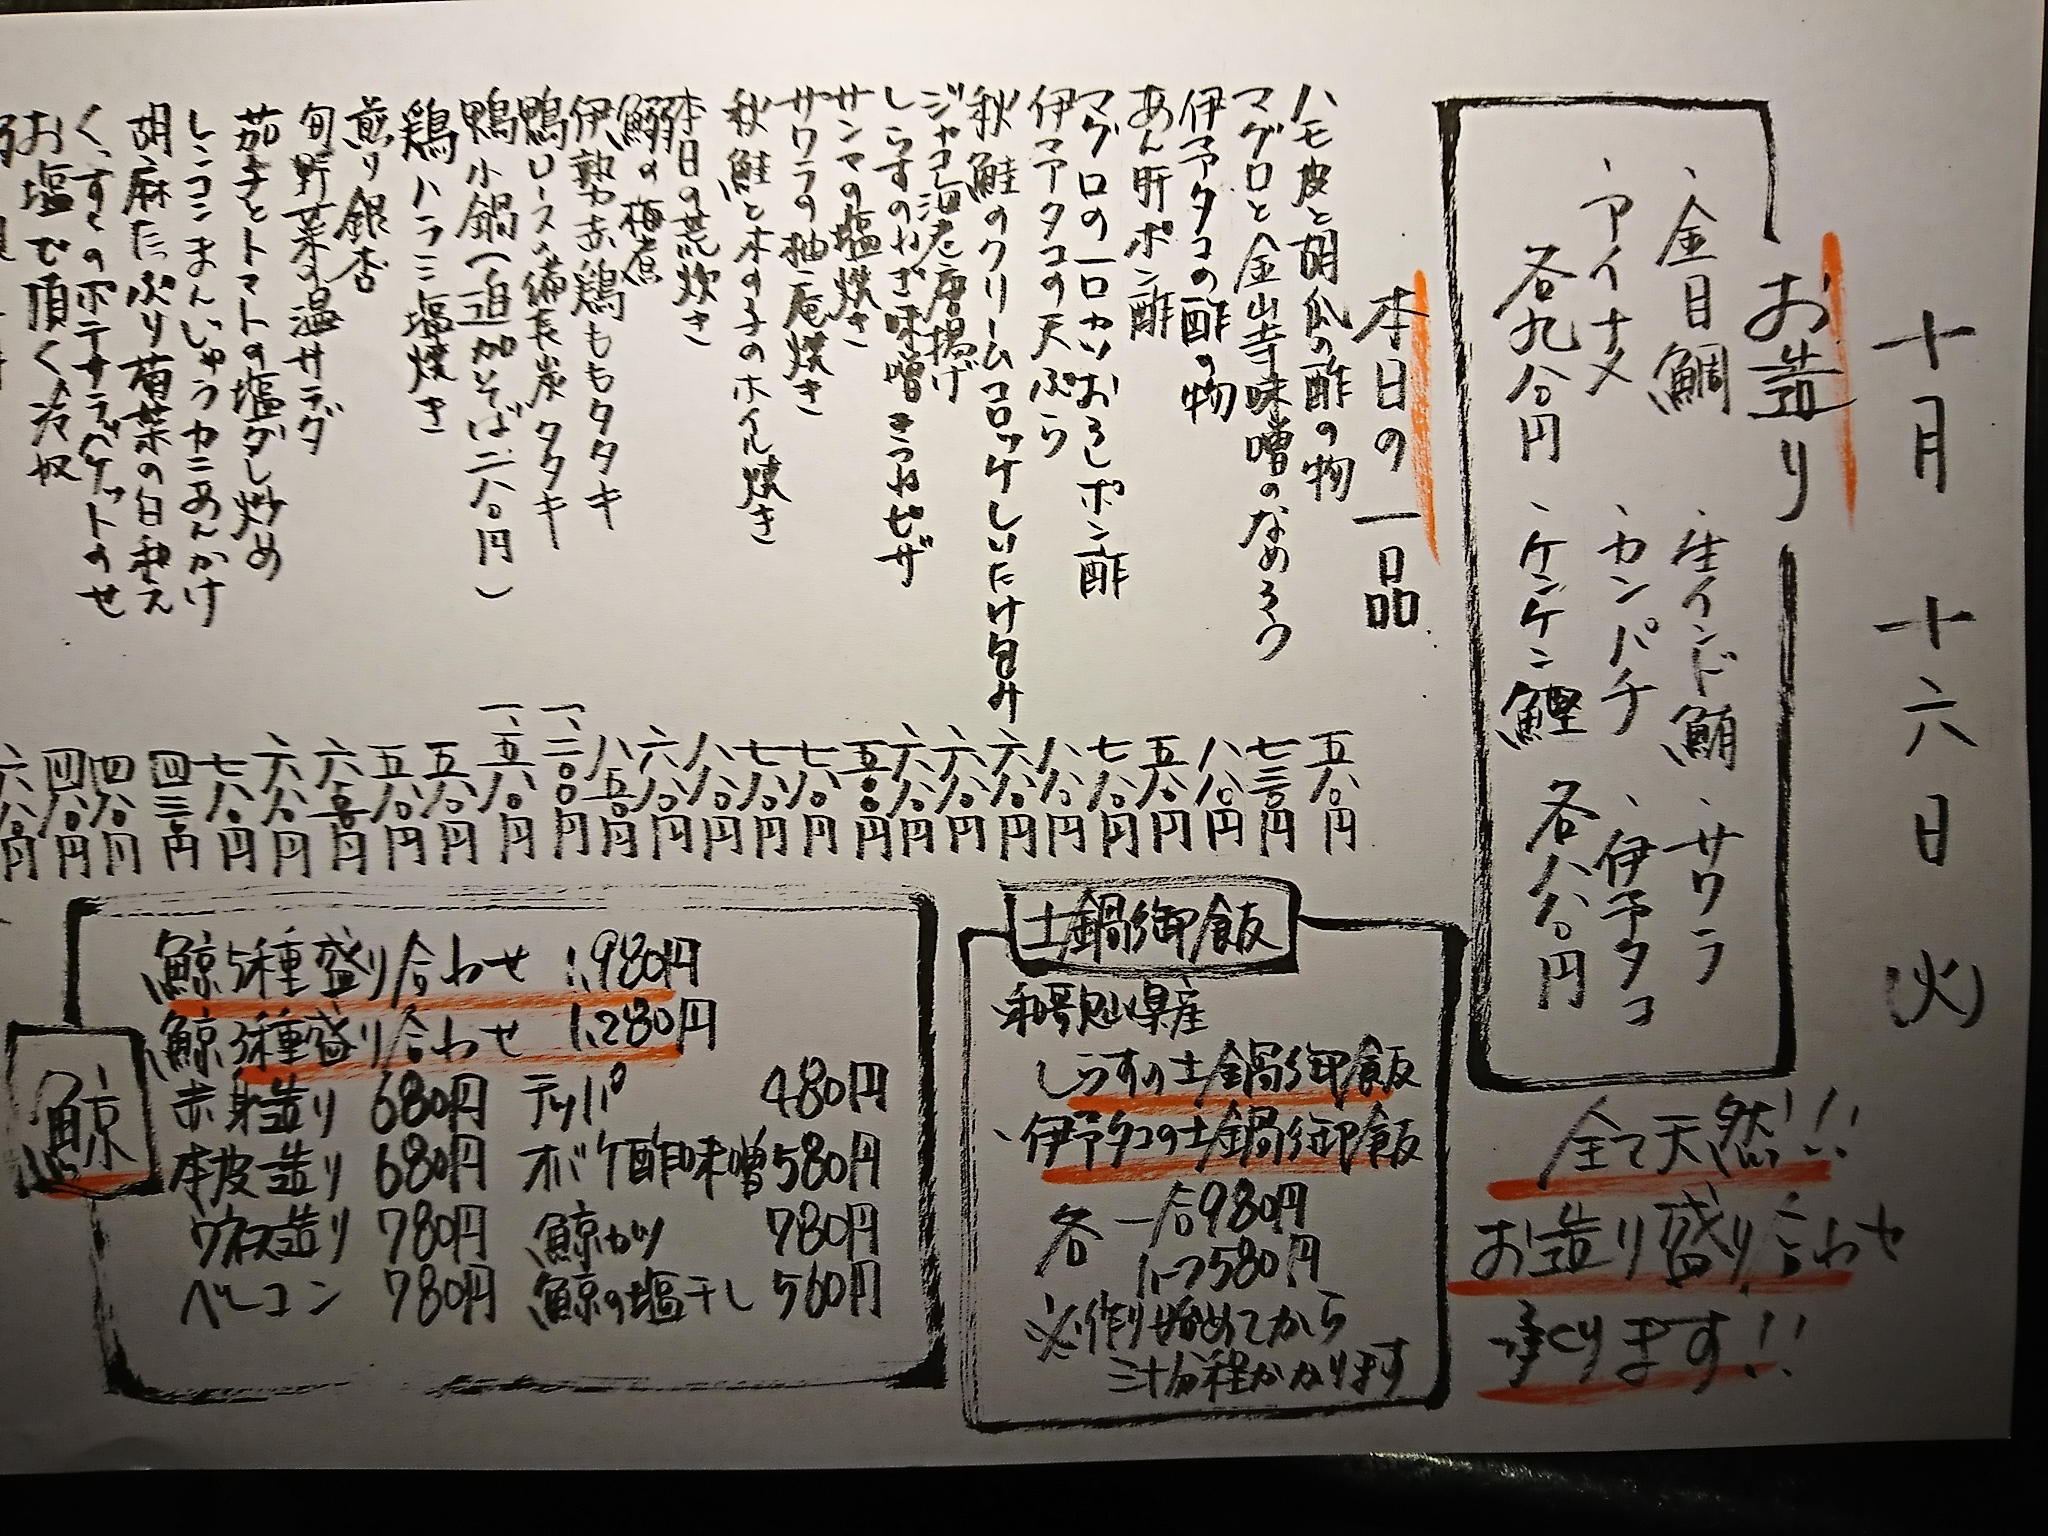 十月十六日(火)
お造り
、金目鯛 、生インド鮪 、サワラ
、アイナメ 、カンパチ 、伊予タコ
各九八〇円 、ケンケン鰹 各八八〇円
全て天然!!
お造り盛り合わせ
承ります!!
本日の一品
ハモ皮と胡瓜の酢の物 五八〇円
マグロと金山寺味噌のなめろう 七三〇円
伊予タコの酢の物 八八〇円
あん肝ポン酢 五八〇円
マグロの一口カツおろしポン酢 七八〇円
伊予タコの天ぷら 八八〇円
秋鮭のクリームコロッケしいたけ包み 六八〇円
ジャコ海老唐揚げ 六八〇円
しらすのねぎ味噌きつねピザ 六八〇円
サンマの塩焼き 五〇〇円
サワラの柚庵焼き 七八〇円
秋鮭と木の子のホイル焼き 七八〇円
本日の荒炊き 八八〇円
鰯の梅煮 六八〇円
伊勢赤鶏ももタタキ 八五〇円
鴨ロースの備長炭タタキ 一、二〇〇円
鴨小鍋(追加そば二八〇円) 一、五八〇円
鶏ハラミ塩焼き 五八〇円
煎り銀杏 五八〇円
旬野菜の温サラダ 六五〇円
茄子とトマトの塩ダレ炒め 六八〇円
レンコンまんじゅうカニあんかけ 七八〇円
胡麻たっぷり菊菜の白和え 四三〇円
くんすくのポテサラバケットのせ 四八〇円
お塩で頂く冷奴 四八〇円
六八〇円
土鍋御飯
和歌山県産
しらすの土鍋御飯
、伊予タコの土鍋御飯
各 一合980円
1人つ580円
※作り始めてから
三十分程かかります
鯨
鯨5種盛り合わせ 1,980円
鯨3種盛り合わせ 1,280円
赤身造り 680円 テッパ 480円
本皮造り 680円 オバケ酢味噌 580円
ウネス造り 780円 鯨カツ 780円
ベーコン 780円 鯨の塩干し 560円